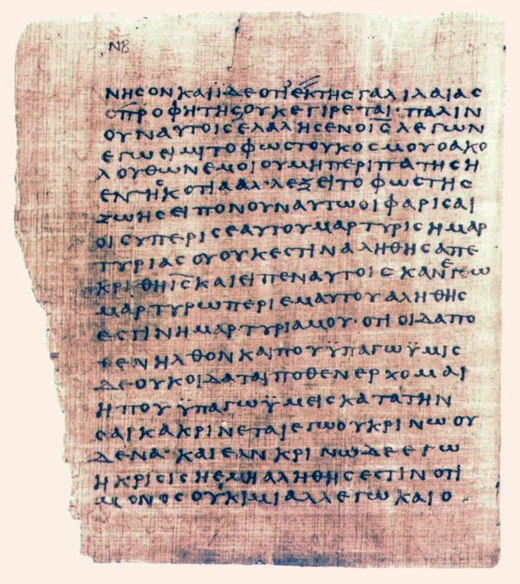 ΝΒ
ΝΗϹΟΝ ΚΑΙ ΙΔΕ ΟΤΙ ΕΚ ΤΗϹ ΓΑΛΙΛΑΙΑϹ
Ο ΠΡΟΦΗΤΗϹ ΟΥΚ ΕΓΙΡΕΤΑΙ· ΠΑΛΙΝ
ΟΥΝ ΑΥΤΟΙϹ ΕΛΑΛΗϹΕΝ Ο Ι̅Ϲ̅ ΛΕΓΩΝ
ΕΓΩ ΕΙΜΙ ΤΟ ΦΩϹ ΤΟΥ ΚΟϹΜΟΥ Ο ΑΚΟ
ΛΟΥΘΩΝ ΕΜΟΙ ΟΥ ΜΗ ΠΕΡΙΠΑΤΗϹΗ
ΕΝ ΤΗ ϹΚΟΤΙΑ ΑΛΛ ΕΞΕΙ ΤΟ ΦΩϹ ΤΗϹ
ΖΩΗϹ ΕΙΠΟΝ ΟΥΝ ΑΥΤΩ ΟΙ ΦΑΡΙϹΑΙ
ΟΙ ϹΥ ΠΕΡΙ ϹΕΑΥΤΟΥ ΜΑΡΤΥΡΙϹ Η ΜΑΡ
ΤΥΡΙΑ ϹΟΥ ΟΥΚ ΕϹΤΙΝ ΑΛΗΘΗϹ ΑΠΕ
ΚΡΙΘΗ Ι̅Ϲ̅ ΚΑΙ ΕΙΠΕΝ ΑΥΤΟΙϹ ΚΑΝ ΕΓΩ
ΜΑΡΤΥΡΩ ΠΕΡΙ ΕΜΑΥΤΟΥ ΑΛΗΘΗϹ
ΕϹΤΙΝ Η ΜΑΡΤΥΡΙΑ ΜΟΥ· ΟΤΙ ΟΙΔΑ ΠΟ
ΘΕΝ ΗΛΘΟΝ ΚΑΙ ΠΟΥ ΫΠΑΓΩ ΫΜΙϹ
ΔΕ ΟΥΚ ΟΙΔΑΤΑΙ ΠΟΘΕΝ ΕΡΧΟΜΑΙ
Η ΠΟΥ ΫΠΑΓΩ ΫΜΕΙϹ ΚΑΤΑ ΤΗΝ
ϹΑΡΚΑ ΚΡΙΝΕΤΑΙ ΕΓΩ ΟΥ ΚΡΙΝΩ ΟΥ
ΔΕΝΑ· ΚΑΙ ΕΑΝ ΚΡΙΝΩ ΔΕ ΕΓΩ
Η ΚΡΙϹΙϹ Η ΕΜΗ ΑΛΗΘΗϹ ΕϹΤΙΝ ΟΤΙ
ΜΟΝΟϹ ΟΥΚ ΙΜΙ ΑΛΛ ΕΓΩ ΚΑΙ Ο